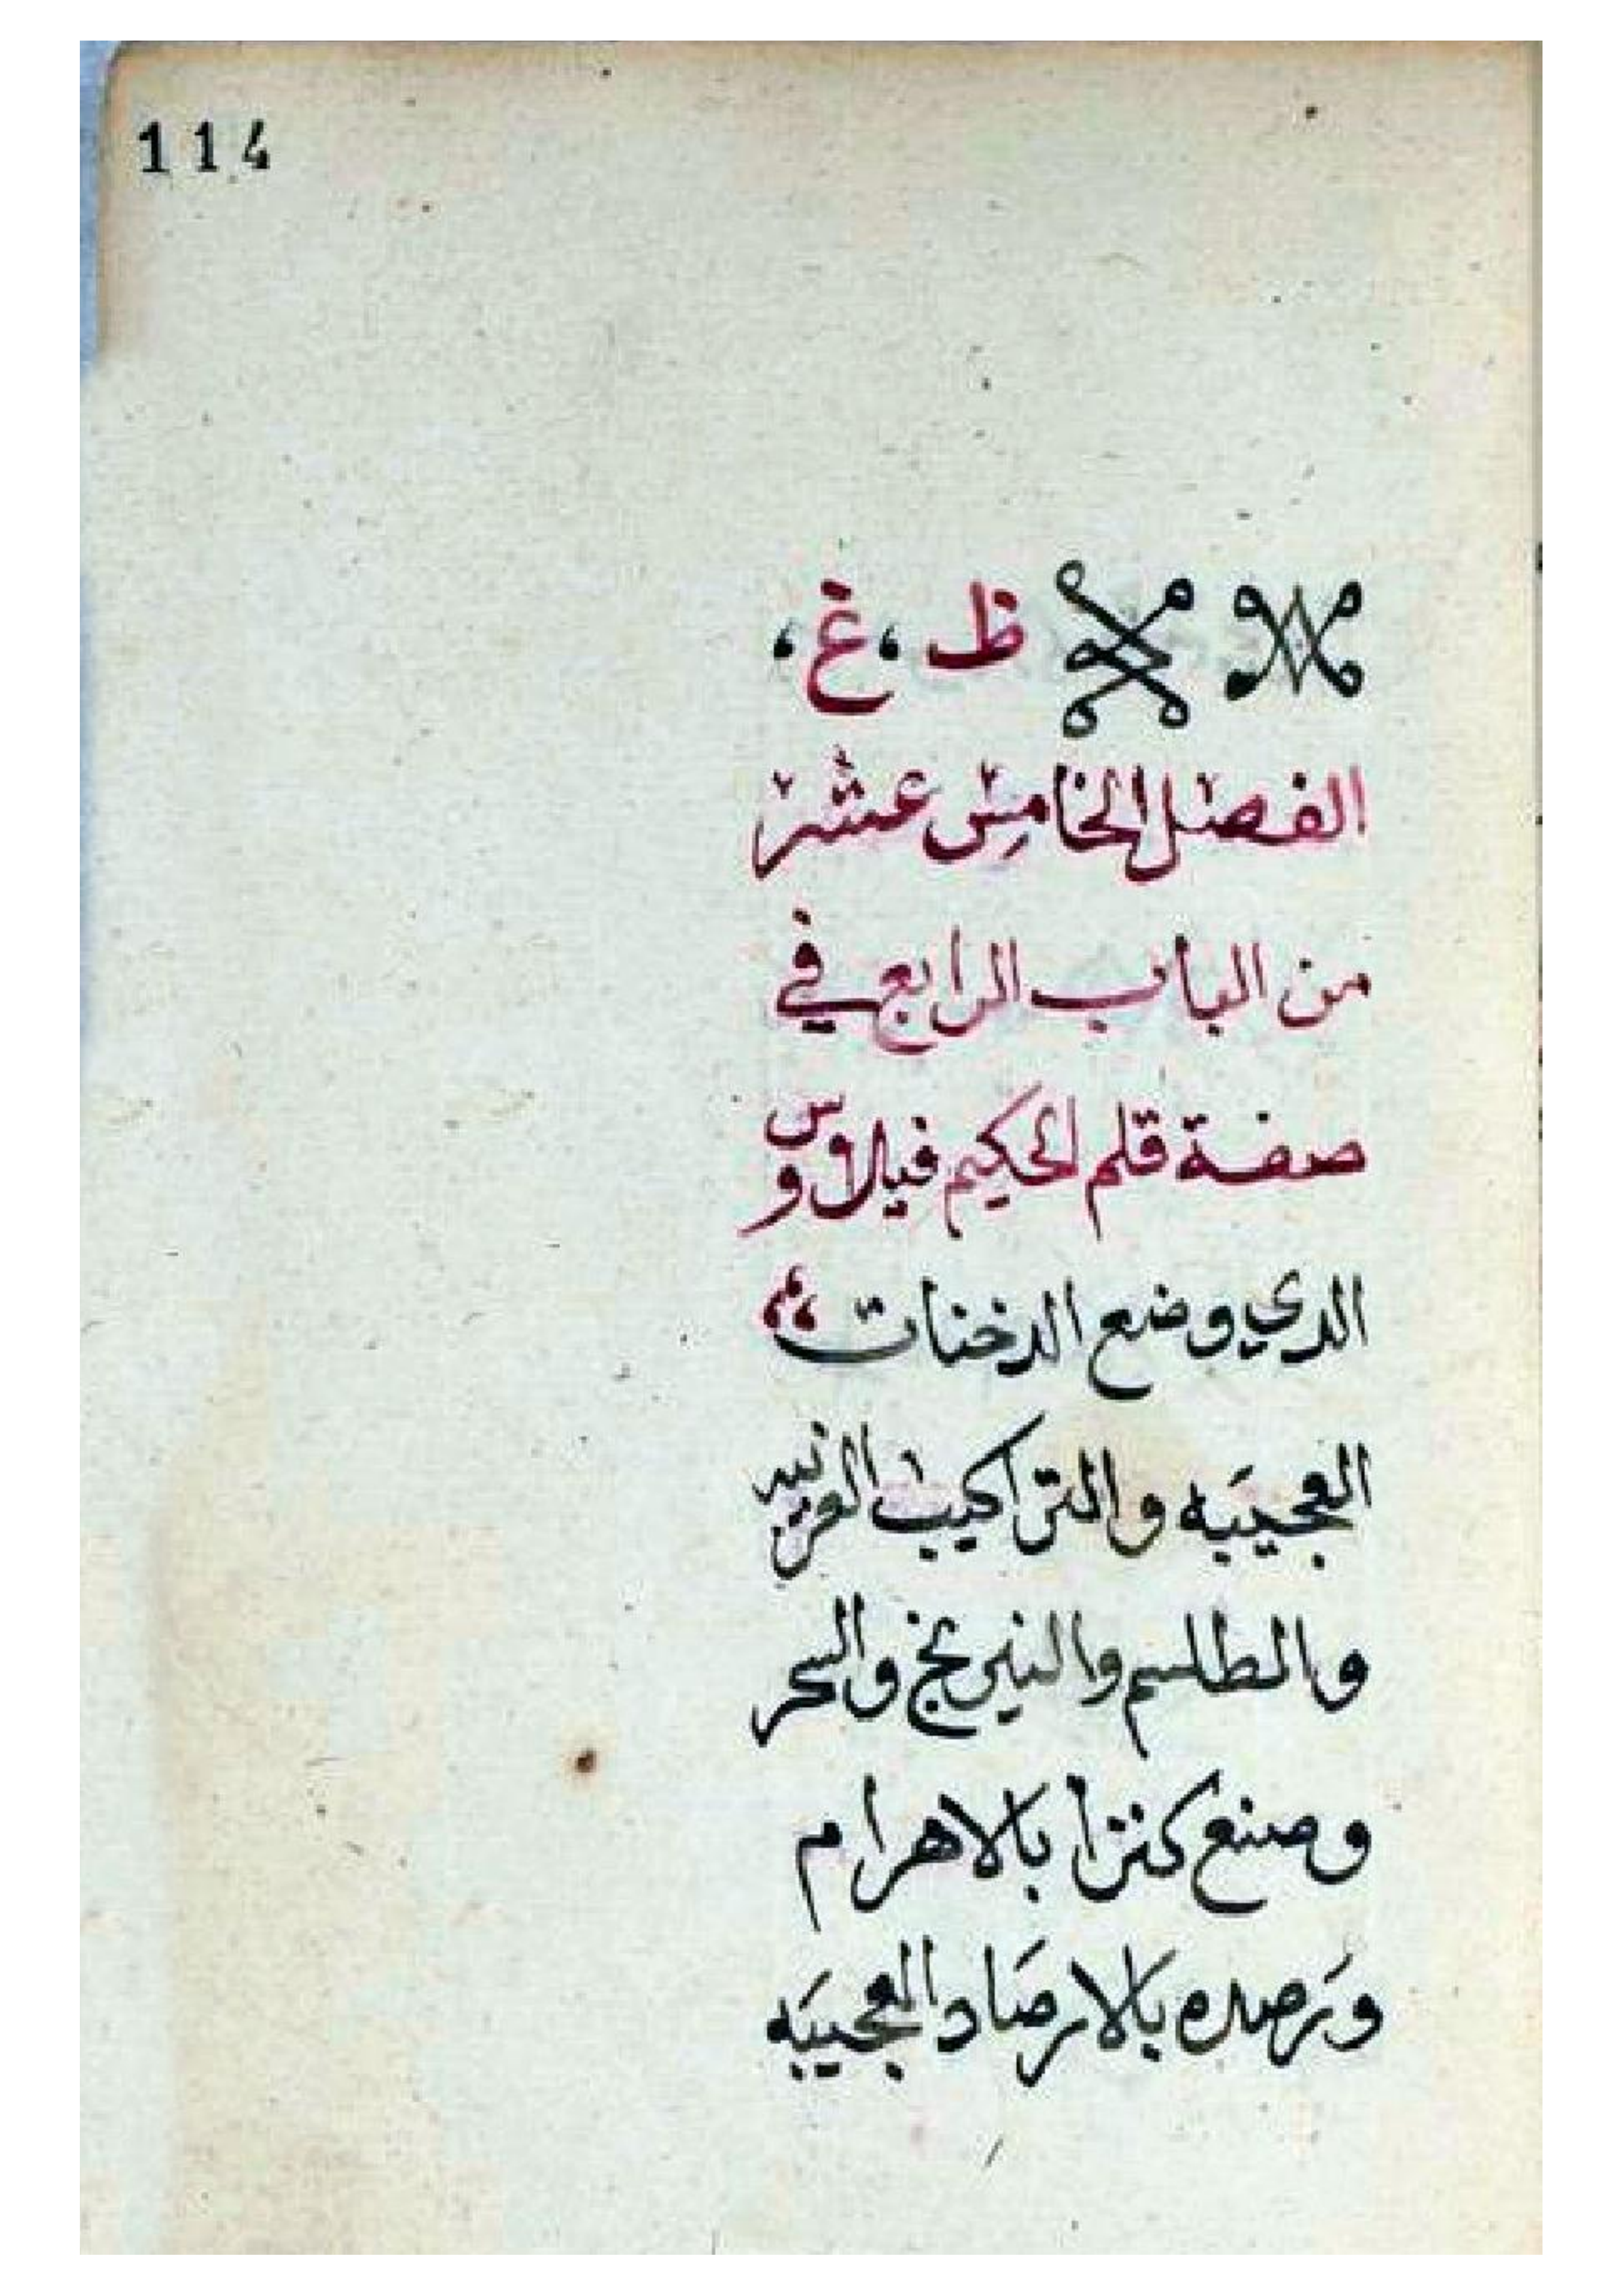 114
ظ ، غ ،
الفصل الخامس عشر
من الباب الرابع في
صفة قلم الحكيم فيلاوس
الدي وضع الدخنات
العجيبَه والتراكيب الغريبه
والطلسم والنيرنج والسحر
وصنع كنزا بالاهرام
وَرَصده بالارصَاد العجيبَه